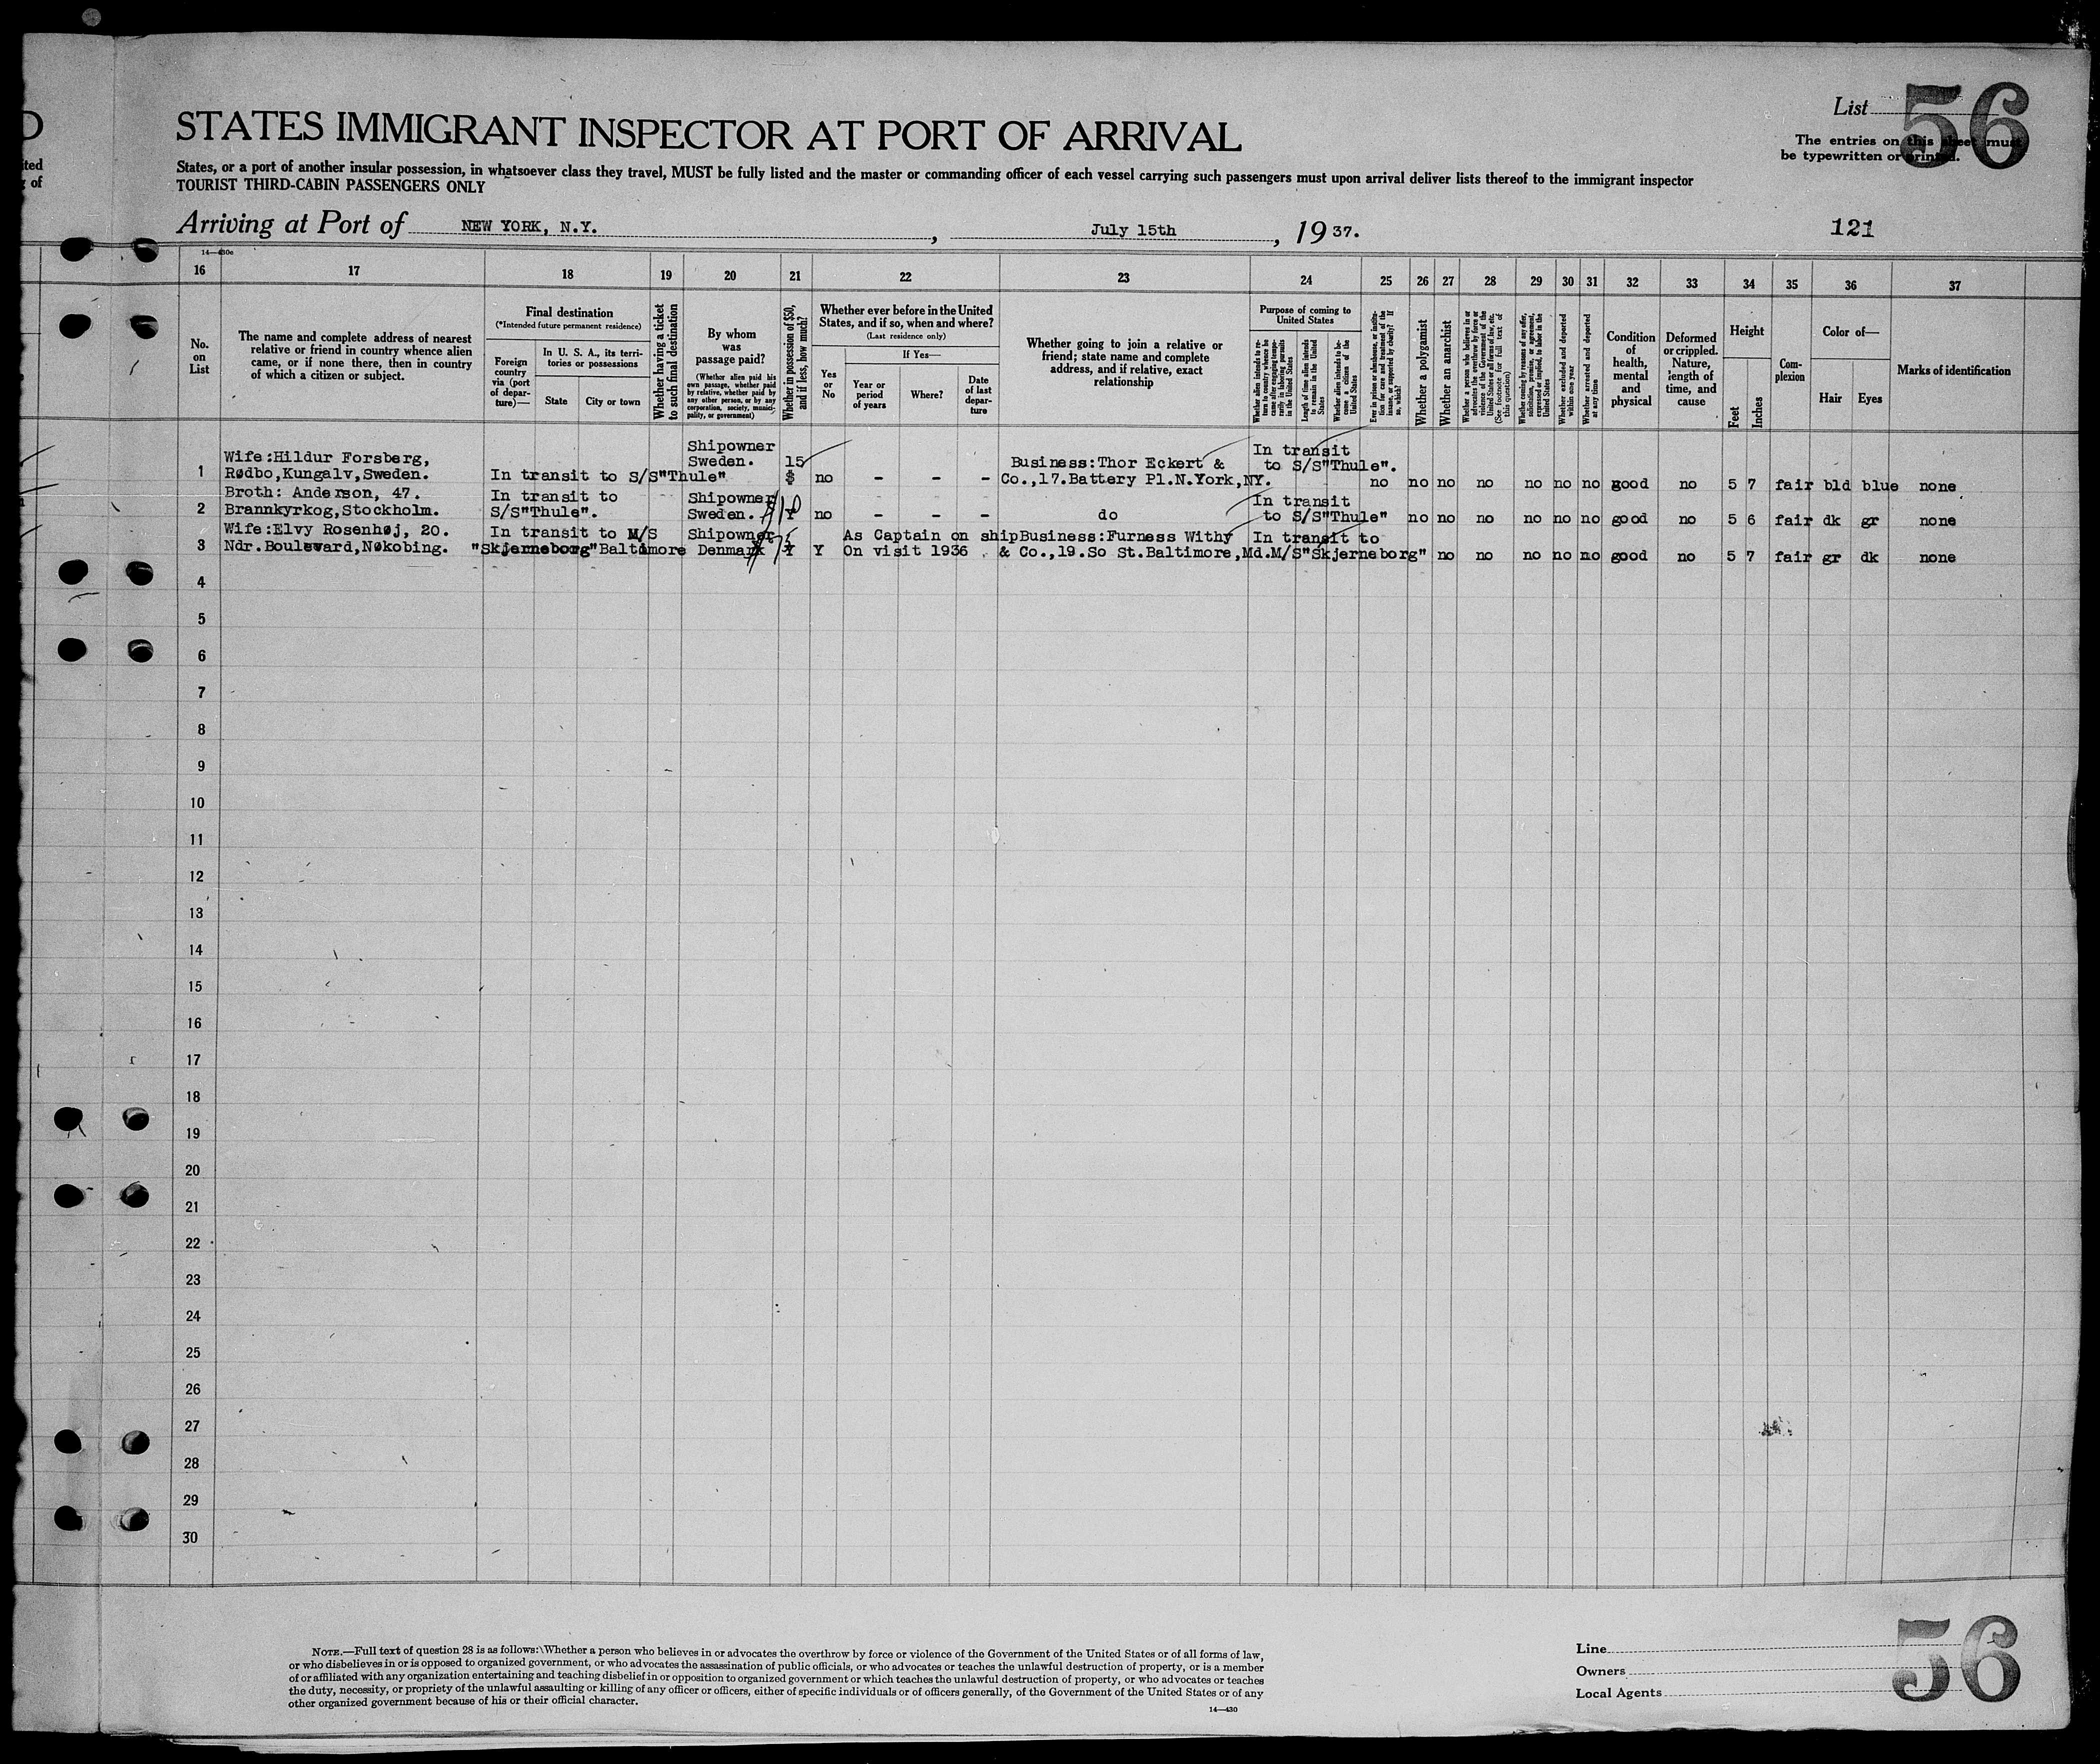 List 56
STATES IMMIGRANT INSPECTOR AT PORT OF ARRIVAL
The entries on this sheet must
be typewritten or printed.
ited
of
States, or a port of another insular possession, in whatsoever class they travel, MUST be fully listed and the master or commanding officer of each vessel carrying such passengers must upon arrival deliver lists thereof to the immigrant inspector
TOURIST THIRD-CABIN PASSENGERS ONLY
Arriving at Port of NEW YORK, N.Y., July 15th, 1937.
121
16 17 18 19 20 21 22 23 24 25 26 27 28 29 30 31 32 33 34 35 36 37
No.
on
List
The name and complete address of nearest
relative or friend in country whence alien
came, or if none there, then in country
of which a citizen or subject.
Final destination
(*Intended future permanent residence)
Foreign
country
via (port
of depar-
ture)—
In U. S. A., its terri-
tories or possessions
State
City or town
Whether having a ticket
to such final destination
By whom
was
passage paid?
(Whether alien paid his
own passage, whether paid
by relative, whether paid by
any other person, or by any
corporation, society, munic-
ipality, or government)
Whether in possession of $50,
and if less, how much?
Whether ever before in the United
States, and if so, when and where?
(Last residence only)
Yes
or
No
If Yes—
Year or
period
of years
Where?
Date
of last
depar-
ture
Whether going to join a relative or
friend; state name and complete
address, and if relative, exact
relationship
Purpose of coming to
United States
Whether alien intends to re-
turn to country whence he
came after engaging tempo-
rarily in laboring pursuits
in the United States
Length of time alien intends
to remain in the United
States
Whether alien intends to be-
come a citizen of the
United States
Ever in prison or almshouse, or institu-
tion for care and treatment of the
insane, or supported by charity? If
so, which?
Whether a polygamist
Whether an anarchist
Whether a person who believes in or
advocates the overthrow by force or
violence of the Government of the
United States or all forms of law, etc.
(See footnote for full text of
this question)
Whether coming by reason of any offer,
solicitation, promise, or agreement,
expressed or implied, to labor in the
United States
Whether excluded and deported
within one year
Whether arrested and deported
at any time
Condition
of
health,
mental
and
physical
Deformed
or crippled.
Nature,
length of
time, and
cause
Height
Feet
Inches
Com-
plexion
Color of—
Hair
Eyes
Marks of identification
Wife:Hildur Forsberg, Shipowner In transit
1 Rødbo,Kungalv,Sweden. In transit to S/S"Thule" Sweden. 15 $ no - - - Business:Thor Eckert & Co.,17.Battery Pl.N.York,NY. to S/S"Thule". no no no no no no no good no 5 7 fair bld blue none
Broth: Anderson, 47. In transit to Shipowner In transit
2 Brannkyrkog,Stockholm. S/S"Thule". Sweden. $10 no - - - do to S/S"Thule" no no no no no no good no 5 6 fair dk gr none
Wife:Elvy Rosenhøj, 20. In transit to M/S Shipowner As Captain on ship Business:Furness Withy In transit to
3 Ndr.Boulevard,Nøkobing. "Skjerneborg"Baltimore Denmark $75 Y On visit 1936 & Co.,19.So St.Baltimore,Md. M/S"Skjerneborg" no no no no no good no 5 7 fair gr dk none
4
5
6
7
8
9
10
11
12
13
14
15
16
17
18
19
20
21
22
23
24
25
26
27
28
29
30
NOTE.—Full text of question 28 is as follows: Whether a person who believes in or advocates the overthrow by force or violence of the Government of the United States or of all forms of law,
or who disbelieves in or is opposed to organized government, or who advocates the assassination of public officials, or who advocates or teaches the unlawful destruction of property, or is a member
of or affiliated with any organization entertaining and teaching disbelief in or opposition to organized government or which teaches the unlawful destruction of property, or who advocates or teaches
the duty, necessity, or propriety of the unlawful assaulting or killing of any officer or officers, either of specific individuals or of officers generally, of the Government of the United States or of any
other organized government because of his or their official character.
14—430
Line
Owners
Local Agents
56